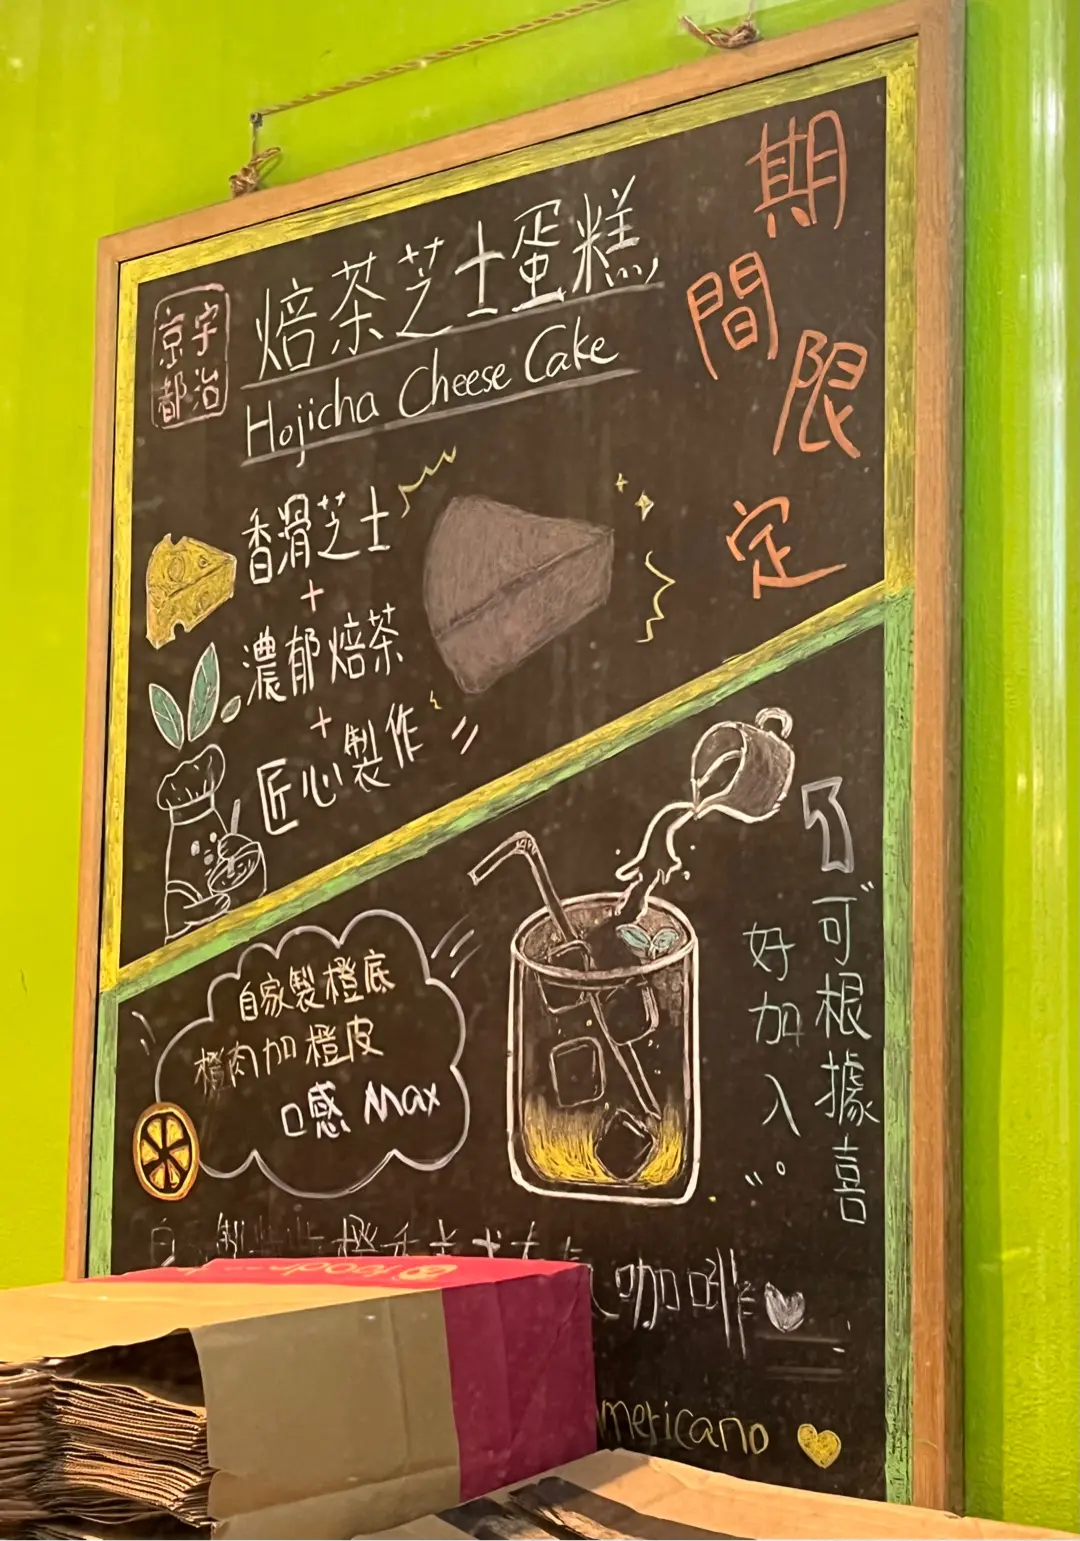 期間限定
京都
宇治
焙茶芝士蛋糕
Hojicha Cheese Cake
香滑芝士
+
濃郁焙茶
+
匠心製作
可根據喜
好加入
自家製橙底
橙肉加橙皮
口感 Max
咖啡
mericano